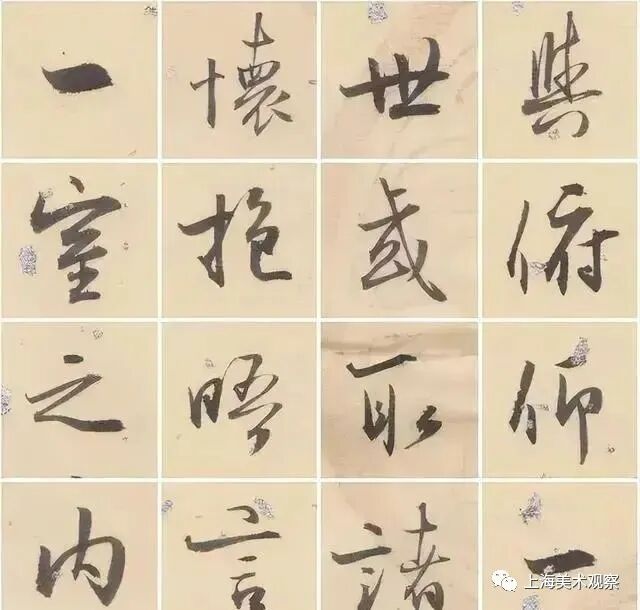 與俯仰一
世或取諸
懷抱晤言
一室之内
上海美术观察